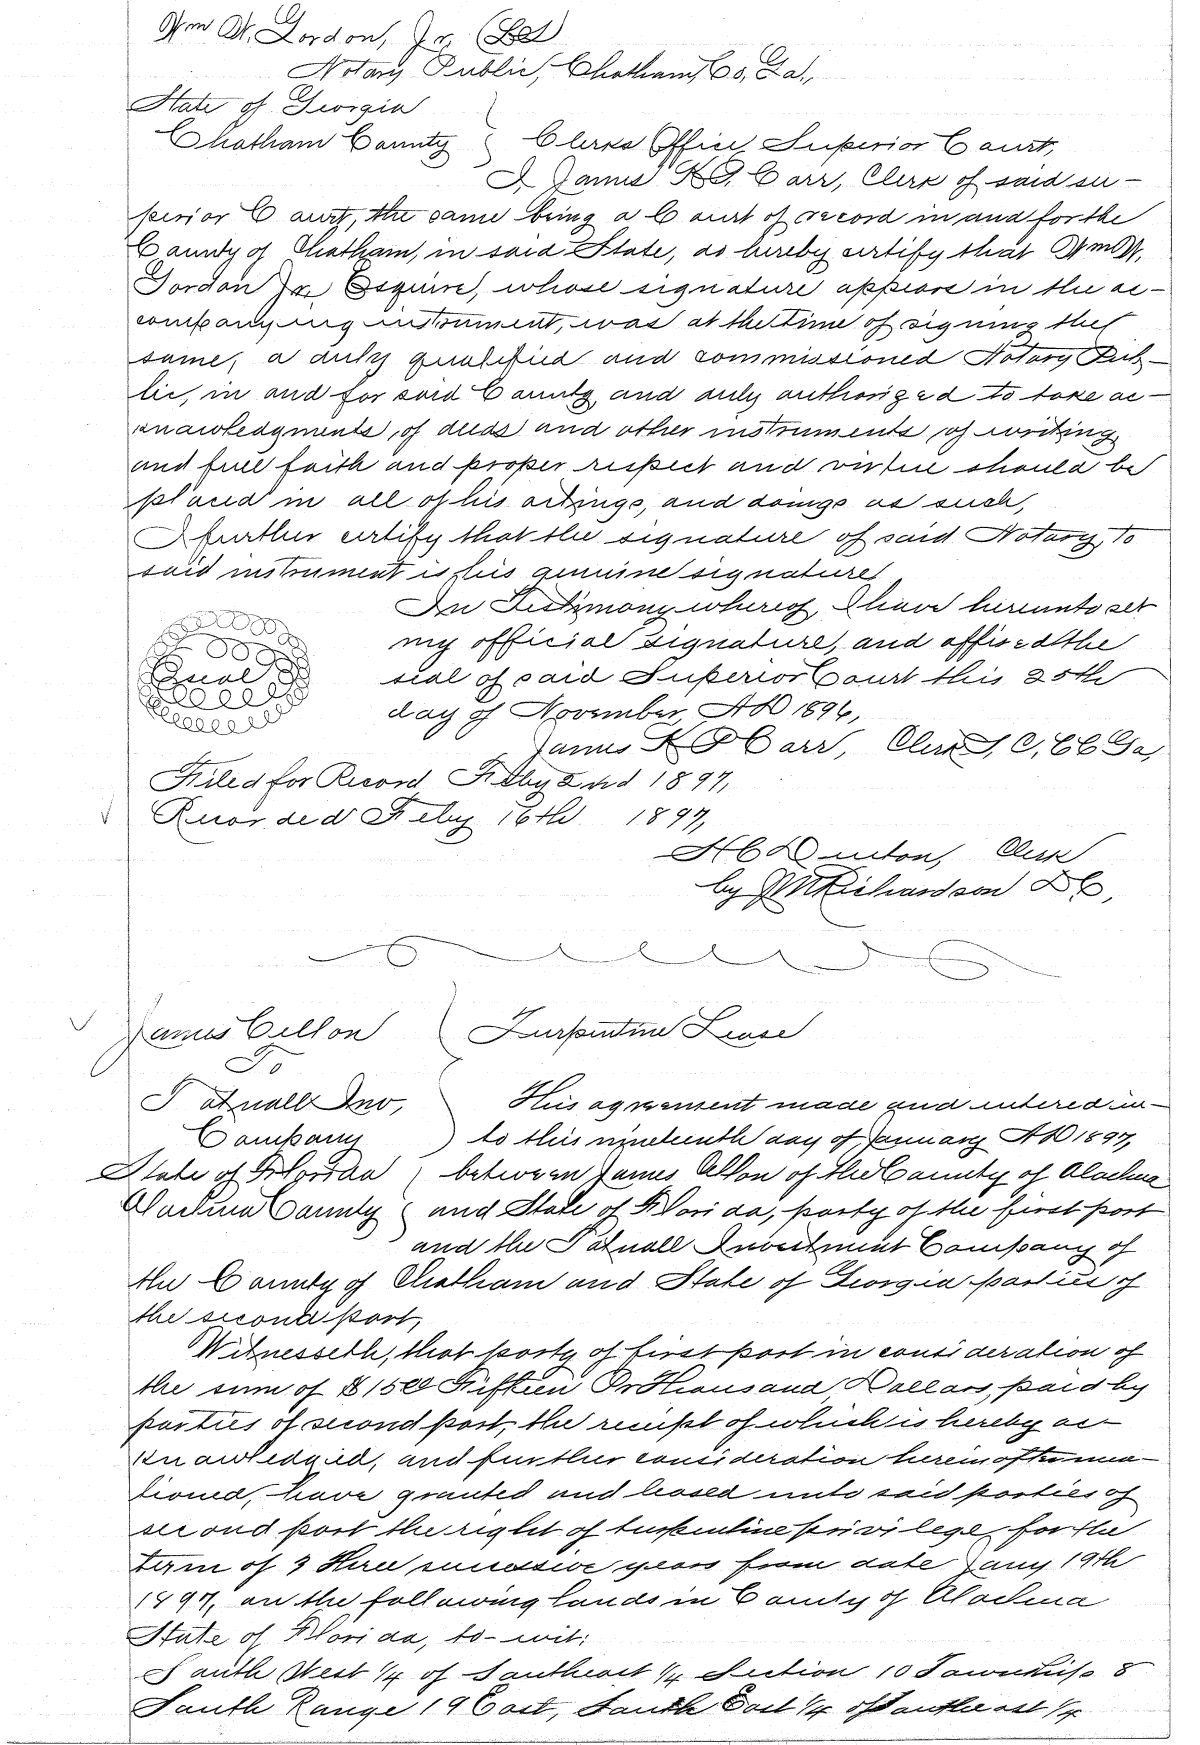 Wm W. Gordon, Jr. (LS)
Notary Public, Chatham, Co, Ga.,
State of Georgia
Chatham County Clerks Office Superior Court,
I James K. P. Carr, Clerk of said su-
perior Court, the same being a Court of record in and for the
County of Chatham, in said State, do hereby certify that Wm W,
Gordon Jr. Esquire, whose signature appears in the ac-
companying instrument, was at the time of signing the
same, a duly qualified and commissioned Notary Pub-
lic, in and for said County, and duly authorized to take ac-
knowledgments, of deeds and other instruments, of writing,
and full faith and proper respect and virtue should be
placed in all of his actings, and doings as such,
I further certify that the signature of said Notary, to
said instrument is his genuine signature
In Testimony whereof, I have hereunto set
my official signature, and affixed the
Seal
seal of said Superior Court this 25th
day of November, AD 1896,
James K P Carr, Clerk S, C, C C Ga,
Filed for Record Feby 2nd 1897,
Recorded Feby 16th 1897,
H C Denton, Clerk
by Richardson D C,
James Cellon Turpentine Lease
To
Tatnall Inv, This agreement made and entered in-
Company to this nineteenth day of January AD 1897,
State of Florida between James Cellon of the County of Alachua
Alachua County and State of Florida, party of the first part
and the Tatnall Investment Company of
the County of Chatham and State of Georgia parties of
the second part,
Witnesseth, that party of first part in consideration of
the sum of Fifteen Dollars, paid by
parties of second part, the receipt of which is hereby ac-
knowledged, and further consideration hereinafter men-
tioned, have granted and leased unto said parties of
second part the right of turpentine privilege, for the
term of 3 three successive years from date Jany 19th
1897, on the following lands in County of Alachua
State of Florida, to-wit:
South West 1/4 of Southeast 1/4 Section 10 Township 8
South Range 19 East, South East 1/4 of Southeast 1/4